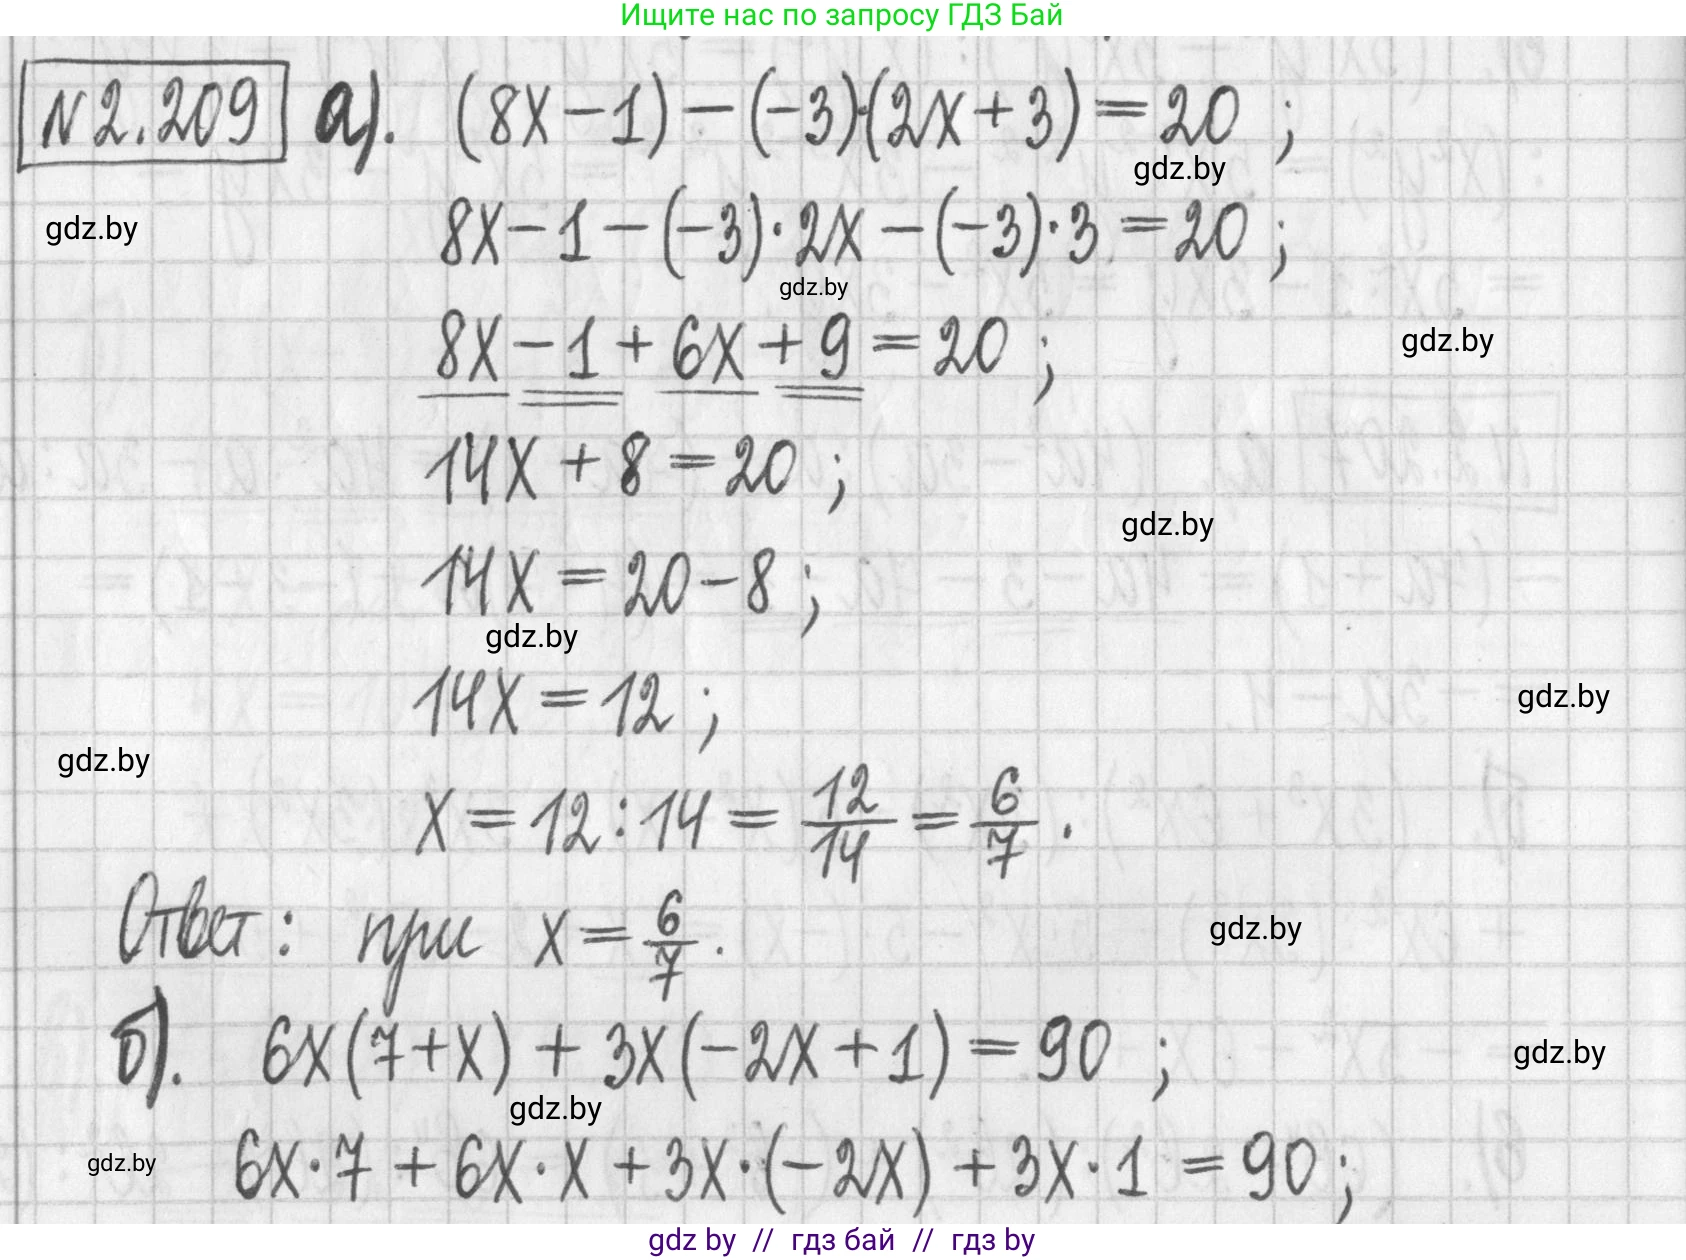 Ищите нас по запросу ГДЗ Бай
N 2.209 а). (8x − 1) − (−3)·(2x + 3) = 20 ;
gdz.by
gdz.by
8x − 1 − (−3)·2x − (−3)·3 = 20 ;
gdz.by
8x − 1 + 6x + 9 = 20 ;
gdz.by
14x + 8 = 20 ;
gdz.by
14x = 20 − 8 ;
gdz.by
14x = 12 ;
gdz.by
gdz.by
x = 12 : 14 = 12/14 = 6/7 .
Ответ : при x = 6/7 .
gdz.by
б). 6x(7 + x) + 3x(−2x + 1) = 90 ;
gdz.by
gdz.by
6x·7 + 6x·x + 3x·(−2x) + 3x·1 = 90 ;
gdz.by
gdz by // гдз бай // гдз by